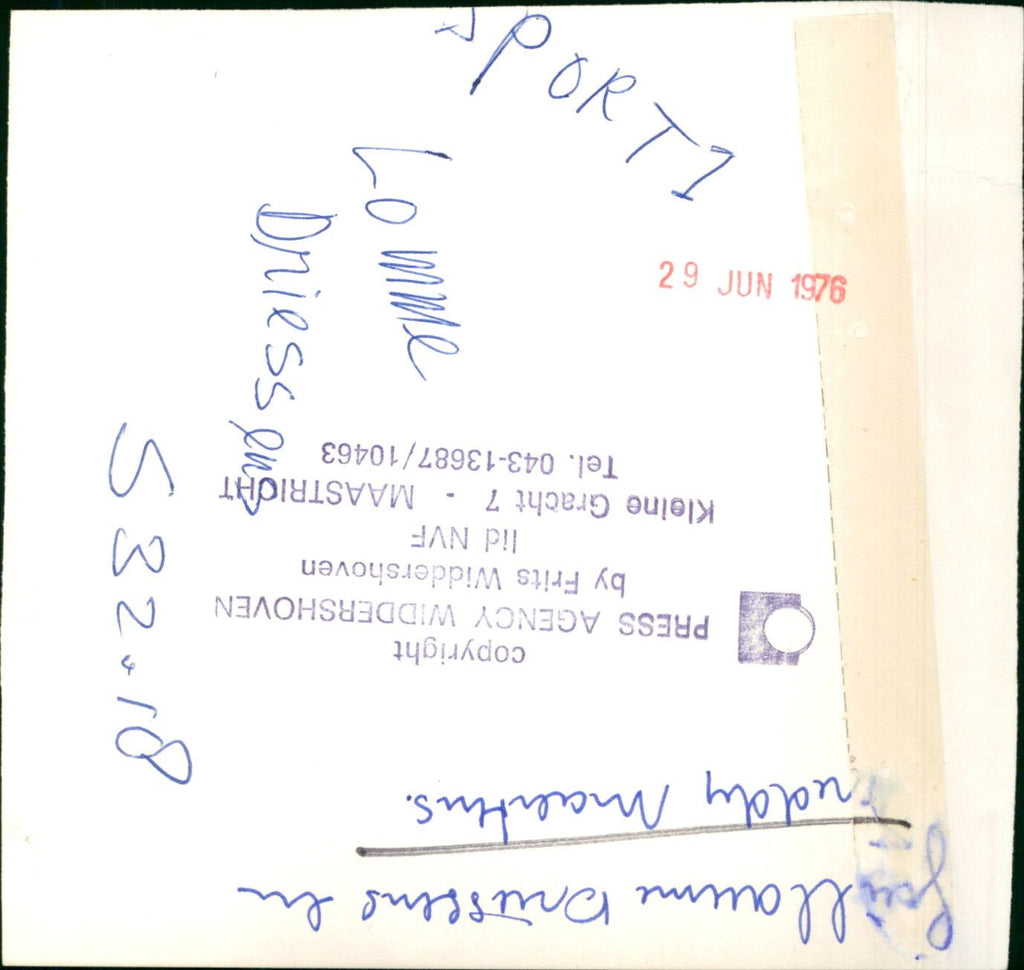 SPORT 1
Lomme
Driessens
S 32.18
29 JUN 1976
copyright
PRESS AGENCY WIDDERSHOVEN
by Frits Widdershoven
lid NVF
Kleine Gracht 7 - MAASTRICHT
Tel. 043-13687/10463
Guillaume Driessens en
Freddy Maertens.